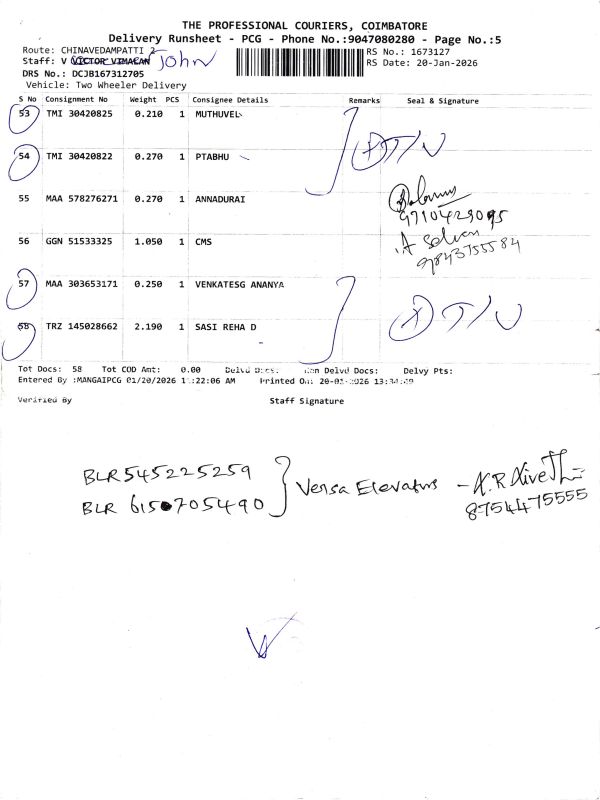 THE PROFESSIONAL COURIERS, COIMBATORE
Delivery Runsheet - PCG - Phone No.:9047080280 - Page No.:5
Route: CHINAVEDAMPATTI 2
RS No.: 1673127
Staff: V VICTOR VIMALAN John
RS Date: 20-Jan-2026
DRS No.: DCJB167312705
Vehicle: Two Wheeler Delivery
S No Consignment No Weight PCS Consignee Details Remarks Seal & Signature
53 TMI 30420825 0.210 1 MUTHUVEL
54 TMI 30420822 0.270 1 PTABHU
55 MAA 578276271 0.270 1 ANNADURAI
9710429095
56 GGN 51533325 1.050 1 CMS
A Selvan
9843755584
57 MAA 303653171 0.250 1 VENKATESG ANANYA
58 TRZ 145028662 2.190 1 SASI REHA D
Tot Docs: 58 Tot COD Amt: 0.00 Delvd Docs: Non Delvd Docs: Delvy Pts:
Entered By :MANGAIPCG 01/20/2026 AM Printed On: 20-01-2026
Verified By Staff Signature
BLR 545225259
BLR 6150705490 } Versa Elevators -
8754475555